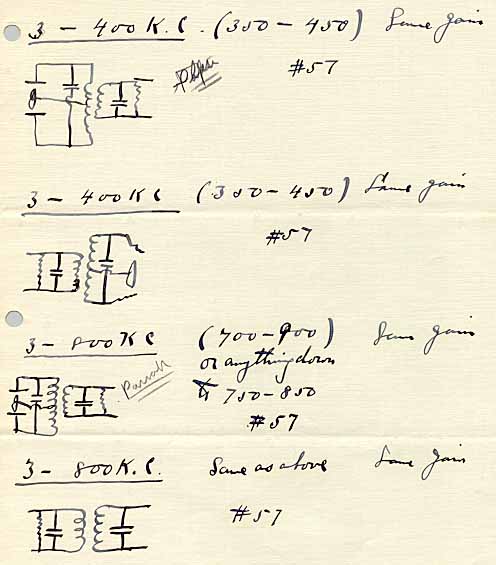 3 - 400 K.C. (350 - 450) Same gain
#57
3 - 400 KC (350 - 450) Same gain
#57
3 - 800 KC (700 - 900) Same gain
or anything down
to 750 - 850
#57
3 - 800 K.C. Same as above Same gain
#57